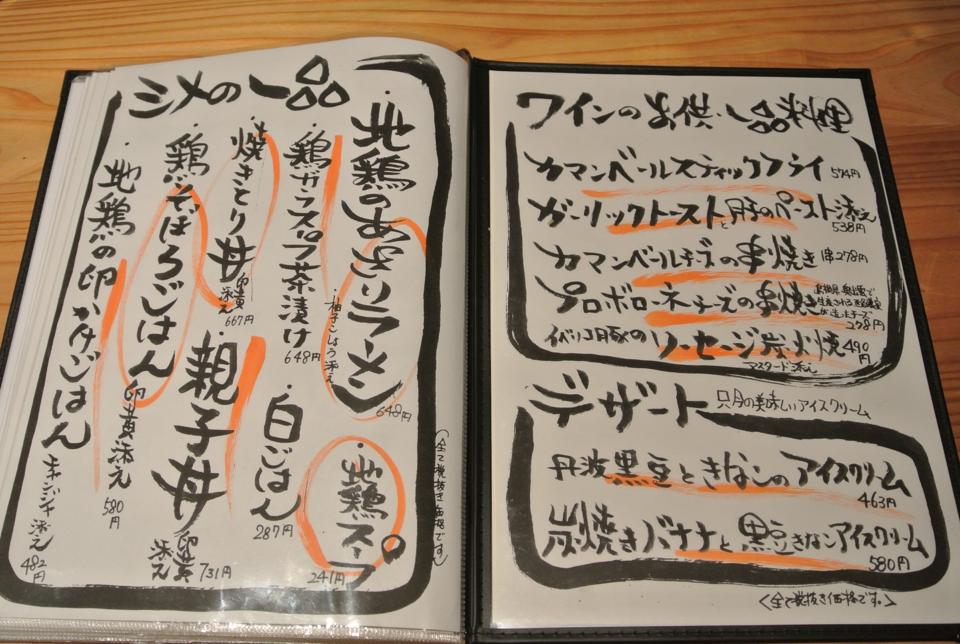 シメの一品
・地鶏のあさりラーメン 648円
・鶏ガラスープ茶漬け 648円
・柚子こしょう添え
・焼きとり丼 卵黄添え 667円
・鶏そぼろごはん 卵黄添え 580円
・地鶏の卵かけごはん キンジャ添え 482円
・地鶏スープ 241円
・白ごはん 287円
・親子丼 卵黄添え 731円
(全て税抜き価格です)
ワインのお供・一品料理
カマンベールスティックフライ 574円
ガーリックトーストと月子のペースト添え 538円
カマンベールチーズの串焼き 1串278円
プロボローネチーズの串焼き 278円
イベリコ豚のソーセージ炭火焼 490円
マスタード添え
デザート 只月の美味しいアイスクリーム
丹波黒豆ときなこのアイスクリーム 463円
炭焼きバナナと黒豆きなこアイスクリーム 580円
<全て税抜き価格です。>